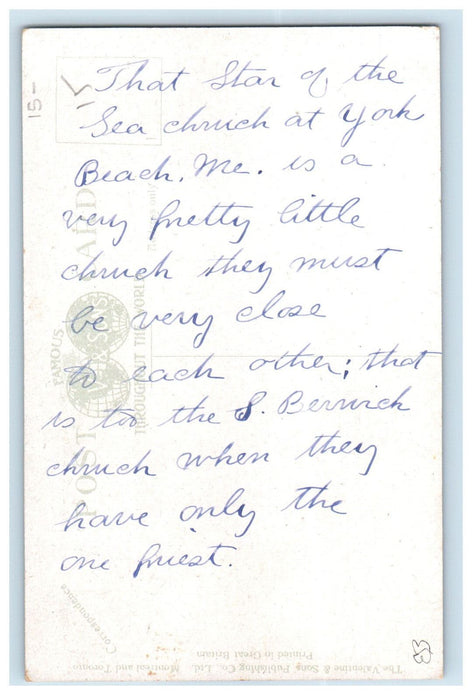 That Star of the
Sea chruch at York
Beach. Me. is a
very pretty little
chruch they must
be very close
to each other; that
is too the S. Berwick
chruch when they
have only the
one priest.
15-
POST CARD
FAMOUS
THROUGHOUT THE WORLD
Correspondence
The Valentine & Sons Publishing Co. Ltd. Montreal and Toronto
Printed in Great Britain